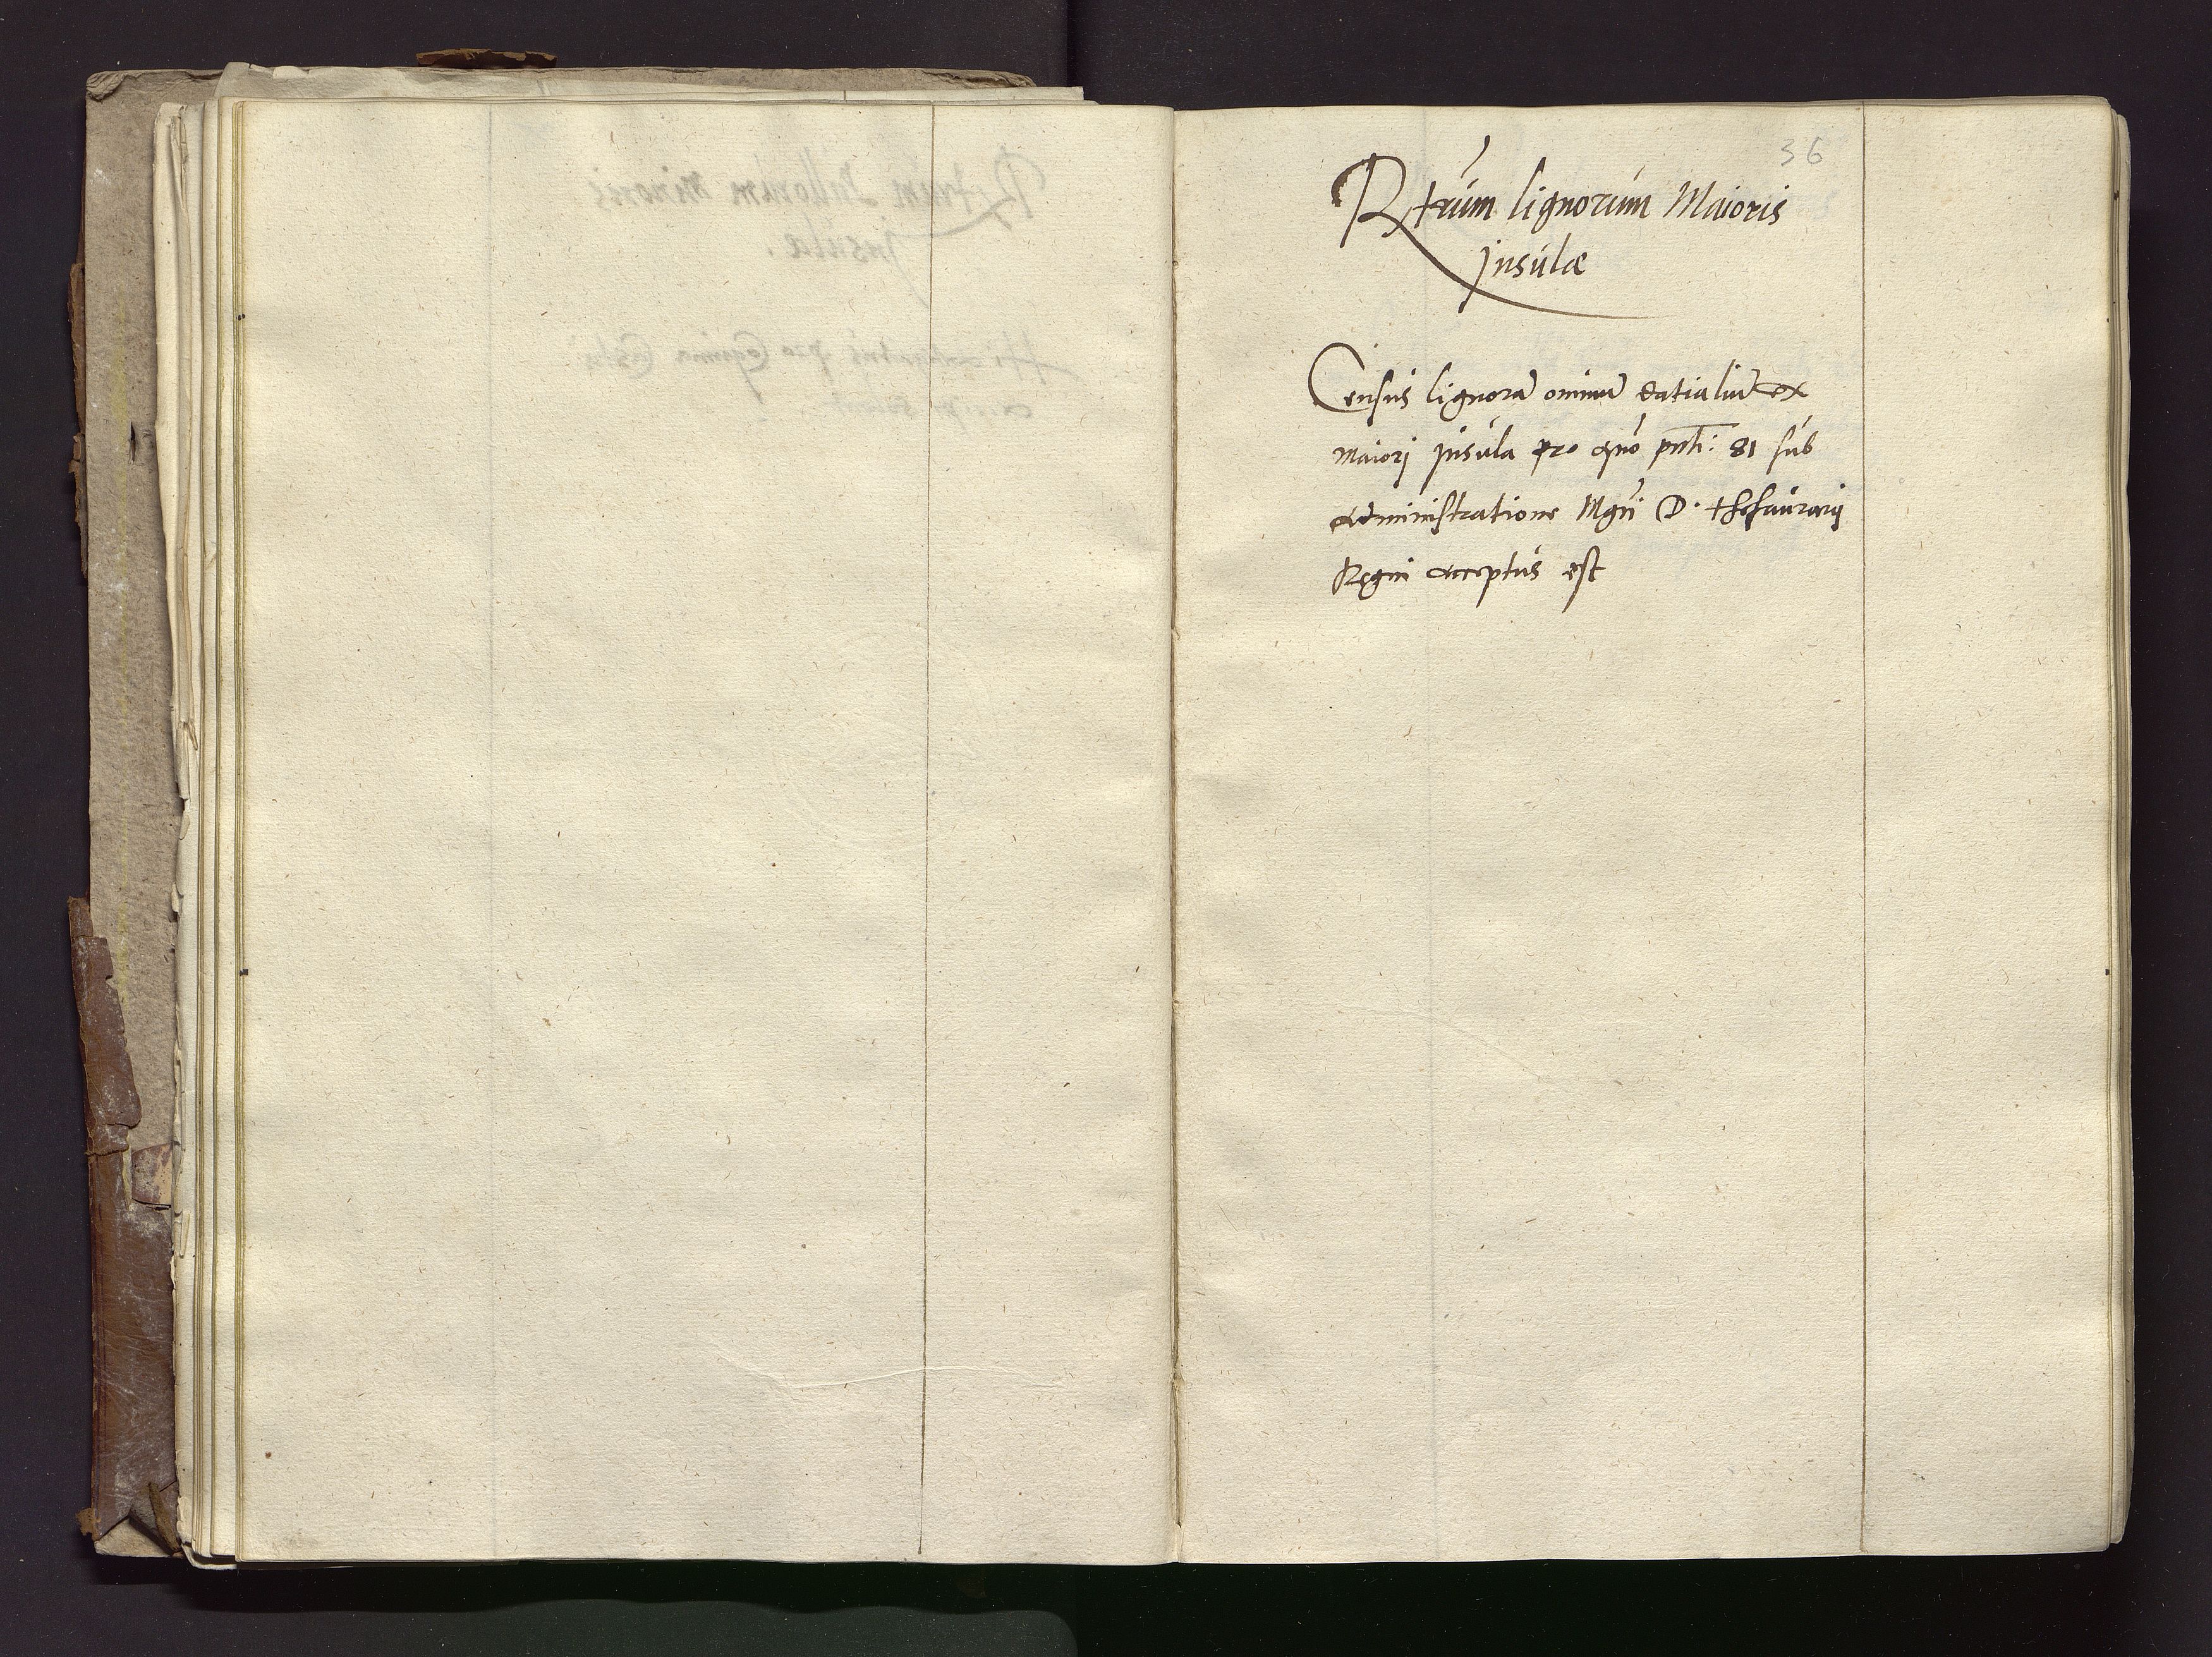 36
Rtrum lignorum Maioris
Insulæ
Census lignorū omniū datialiū ex
maiori Insula pro Año pnti: 81 sub
administratione Mgci D. thesaurarij
Regni acceptus est